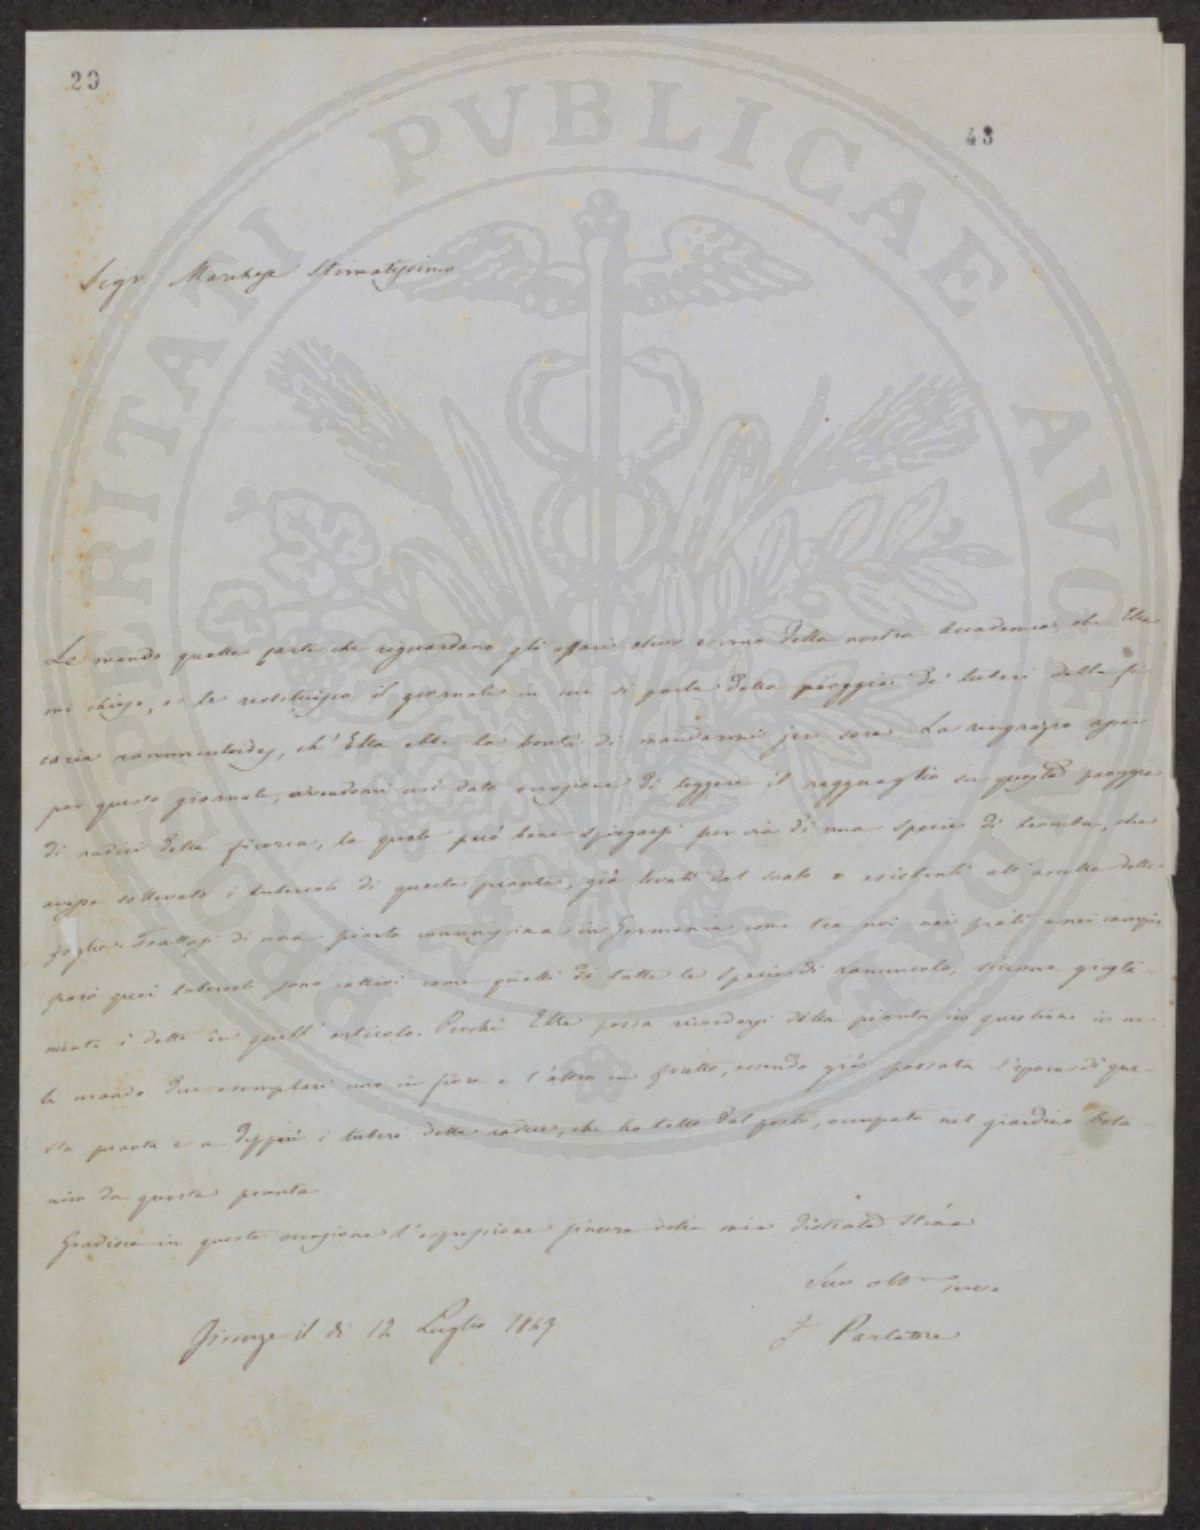 20
43
PROSPERITATI PVBLICAE AVGENDAE
Sigr Marchese Stimatissimo
Le mando quelle carte che riguardano gli affari della nostra Accademia, che Ella
mi chiese, e le restituisco il giornale in cui si parla della pioggia di tuberi della fi-
caria ranunculoides, ch' Ella ebbe la bontà di mandarmi jeri sera. La ringrazio
per questo giornale, avendomi così dato occasione di leggere il ragguaglio su questa pioggia
di radici della ficaria, la quale può bene spiegarsi per via di una specie di tromba, che
avesse sollevato i tubercoli di questa pianta, già levati dal suolo e esistenti all'ascella delle
foglie. Trattasi di una pianta comunissima in Germania come tra noi nei prati e nei campi:
però quei tubercoli sono cattivi come quelli di tutte le specie di ranuncolo, siccome giusta-
mente è detto in quell' articolo. Perchè Ella possa ricordarsi della pianta in questione io
le mando due esemplari uno in fiore e l'altro in frutto, essendo già passata l'epoca di que-
sta pianta e a i tuberi della radice, che ho tolto dal posto, occupato nel giardino bota-
nico da questa pianta.
Gradisca in questa occasione l'espressione sincera della mia distinta stima
Suo obb.mo
Firenze il dì 12 Luglio 1849
F Parlatore